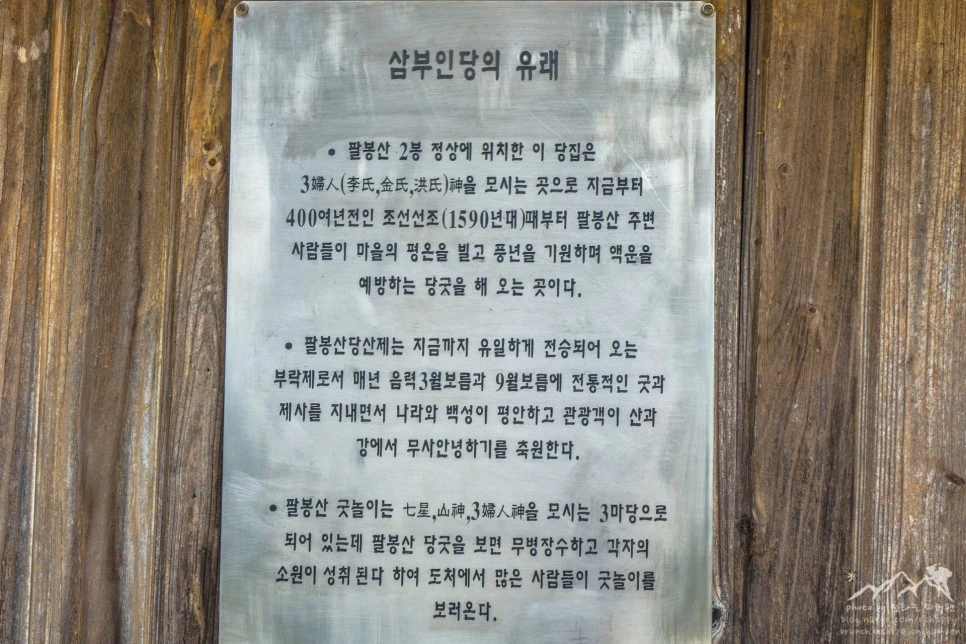 삼부인당의 유래
• 팔봉산 2봉 정상에 위치한 이 당집은
3婦人(李氏,金氏,洪氏)神을 모시는 곳으로 지금부터
400여년전인 조선선조(1590년대)때부터 팔봉산 주변
사람들이 마을의 평온을 빌고 풍년을 기원하며 액운을
예방하는 당굿을 해 오는 곳이다.
• 팔봉산당산제는 지금까지 유일하게 전승되어 오는
부락제로서 매년 음력3월보름과 9월보름에 전통적인 굿과
제사를 지내면서 나라와 백성이 평안하고 관광객이 산과
강에서 무사안녕하기를 축원한다.
• 팔봉산 굿놀이는 七星,山神,3婦人神을 모시는 3마당으로
되어 있는데 팔봉산 당굿을 보면 무병장수하고 각자의
소원이 성취 된다 하여 도처에서 많은 사람들이 굿놀이를
보러온다.
photo by